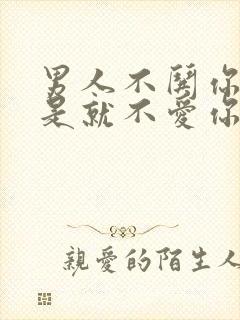 男人不關你
是就不愛你
親愛的陌生人